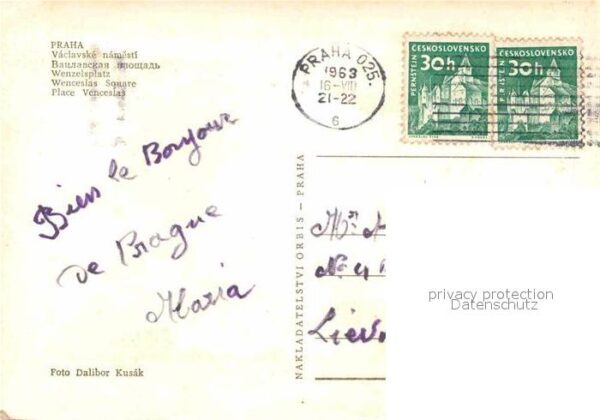 PRAHA
Václavské náměstí
Вацлавская площадь
Wenzelsplatz
Wenceslas Square
Place Venceslas
PRAHA 025
1963
16-VII
21-22
6
ČESKOSLOVENSKO
30h
PERNŠTEJN
ČESKOSLOVENSKO
30h
PERNŠTEJN
Bien le Bonjour
de Prague
Maria
NAKLADATELSTVÍ ORBIS – PRAHA
No 4
Liev
privacy protection
Datenschutz
Foto Dalibor Kusák